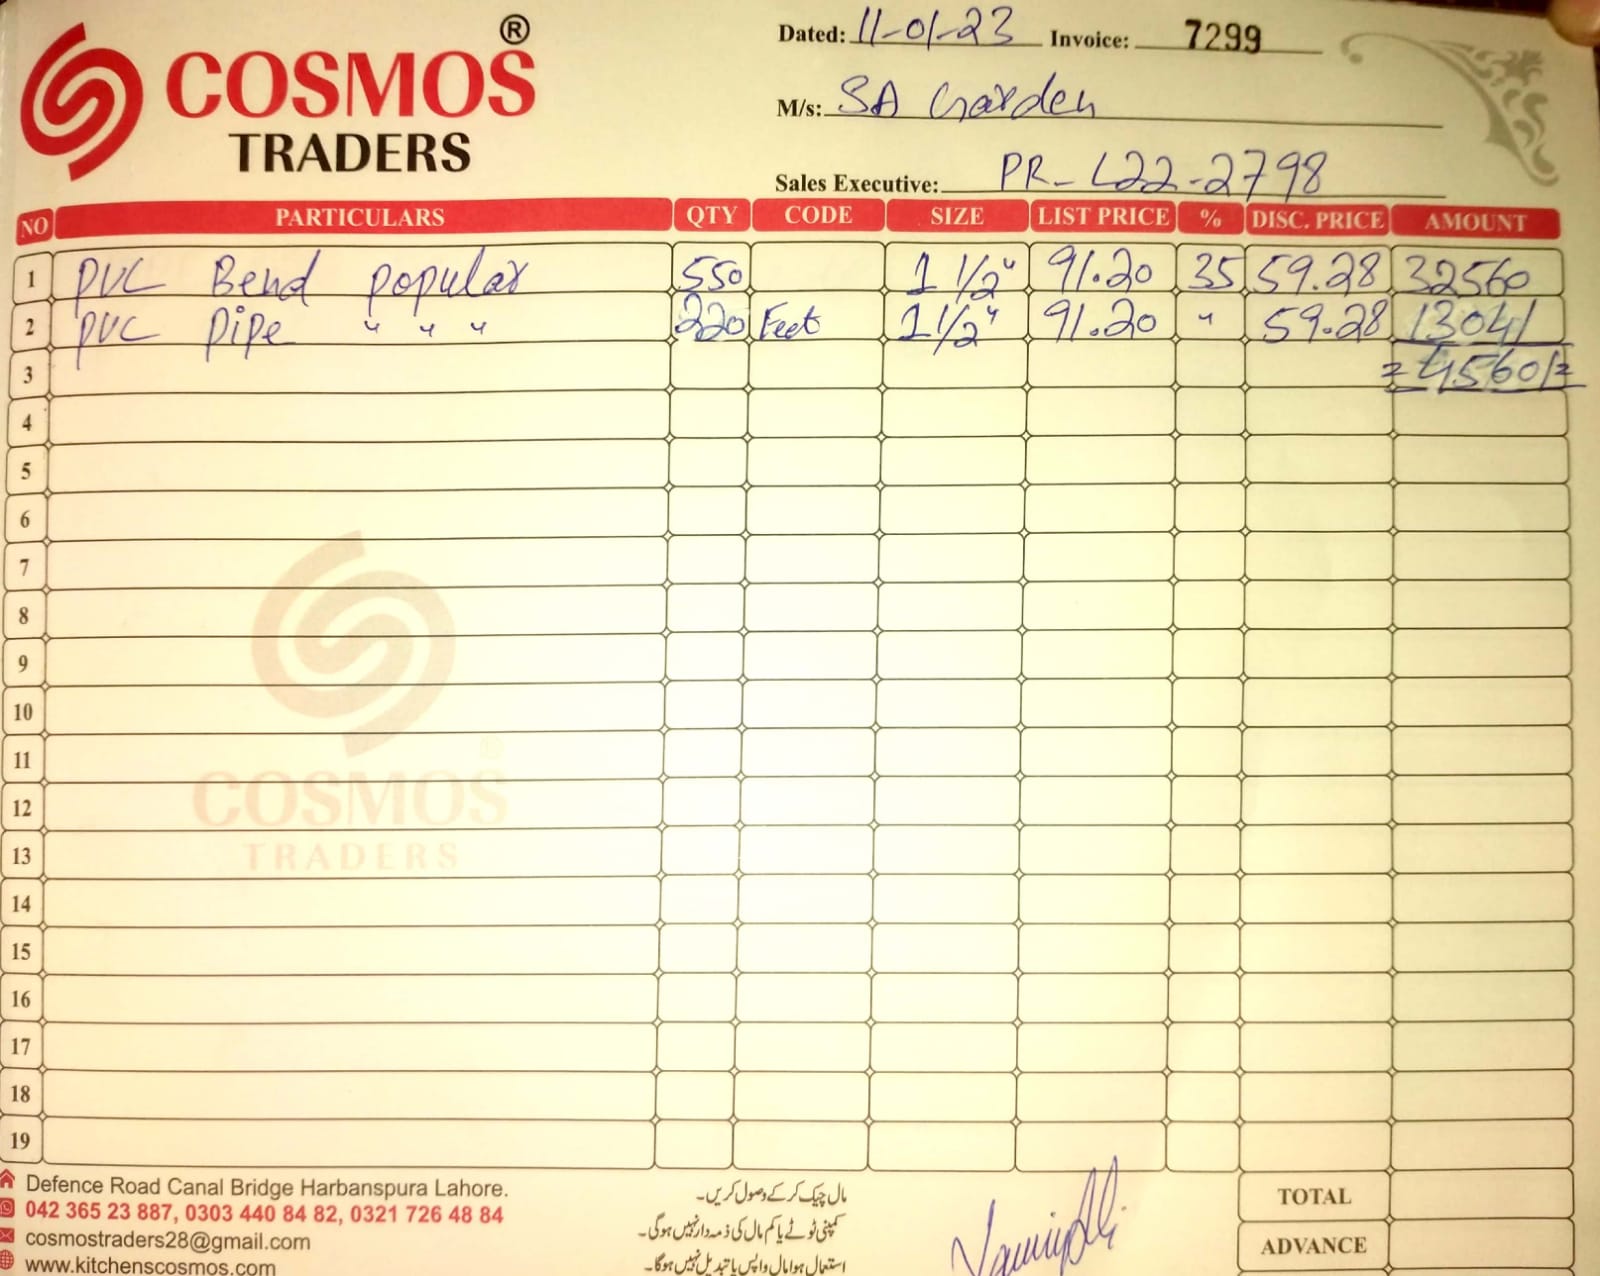 COSMOS ®
TRADERS
Dated: 11-01-23 Invoice: 7299
M/s: SA Garden
Sales Executive: PR-L22-2798
NO PARTICULARS QTY CODE SIZE LIST PRICE % DISC. PRICE AMOUNT
1 PVC Bend popular 550 1 1/2" 91.20 35 59.28 32560
2 PVC Pipe " " " 220 Feet 1 1/2" 91.20 " 59.28 13041
3 = 45601/=
4
5
6
7
8
9
10
11
12
13
14
15
16
17
18
19
COSMOS ®
TRADERS
Defence Road Canal Bridge Harbanspura Lahore.
042 365 23 887, 0303 440 84 82, 0321 726 48 84
cosmostraders28@gmail.com
www.kitchenscosmos.com
مال چیک کر کے وصول کریں۔
کمپنی ٹوٹے یا کم مال کی ذمہ دار نہیں ہوگی۔
استعمال ہوا مال واپس یا تبدیل نہیں ہوگا۔
TOTAL
ADVANCE